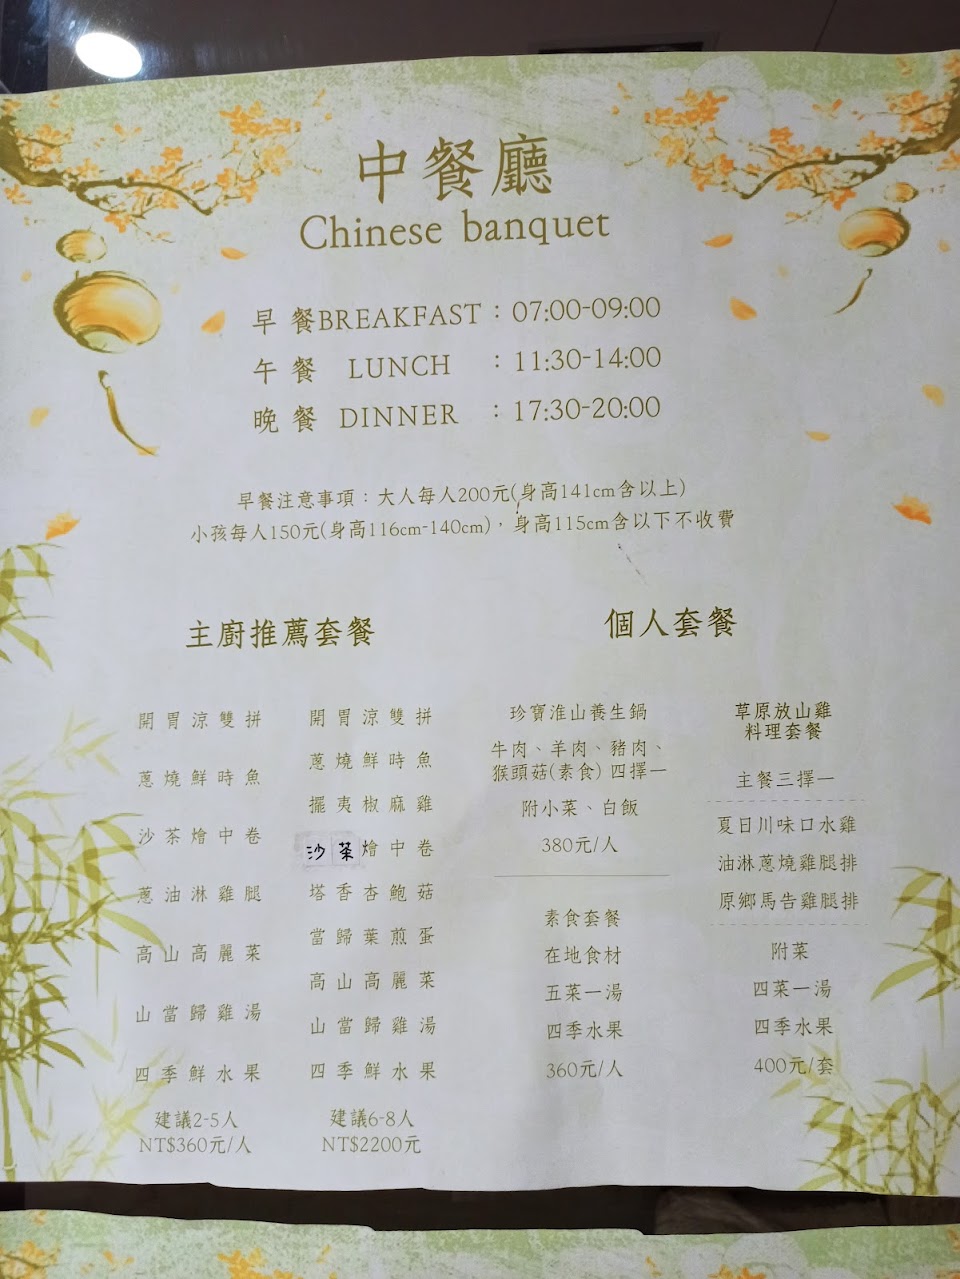 中餐廳
Chinese banquet
早 餐BREAKFAST：07:00-09:00
午 餐 LUNCH ：11:30-14:00
晚 餐 DINNER ：17:30-20:00
早餐注意事項：大人每人200元(身高141cm含以上)
小孩每人150元(身高116cm-140cm)，身高115cm含以下不收費
主廚推薦套餐
開胃涼雙拼
蔥燒鮮時魚
沙茶燴中卷
蔥油淋雞腿
高山高麗菜
山當歸雞湯
四季鮮水果
建議2-5人
NT$360元/人
開胃涼雙拼
蔥燒鮮時魚
擺夷椒麻雞
沙茶燴中卷
塔香杏鮑菇
當歸葉煎蛋
高山高麗菜
山當歸雞湯
四季鮮水果
建議6-8人
NT$2200元
個人套餐
珍寶淮山養生鍋
牛肉、羊肉、豬肉、
猴頭菇(素食) 四擇一
附小菜、白飯
380元/人
素食套餐
在地食材
五菜一湯
四季水果
360元/人
草原放山雞
料理套餐
主餐三擇一
夏日川味口水雞
油淋蔥燒雞腿排
原鄉馬告雞腿排
附菜
四菜一湯
四季水果
400元/套